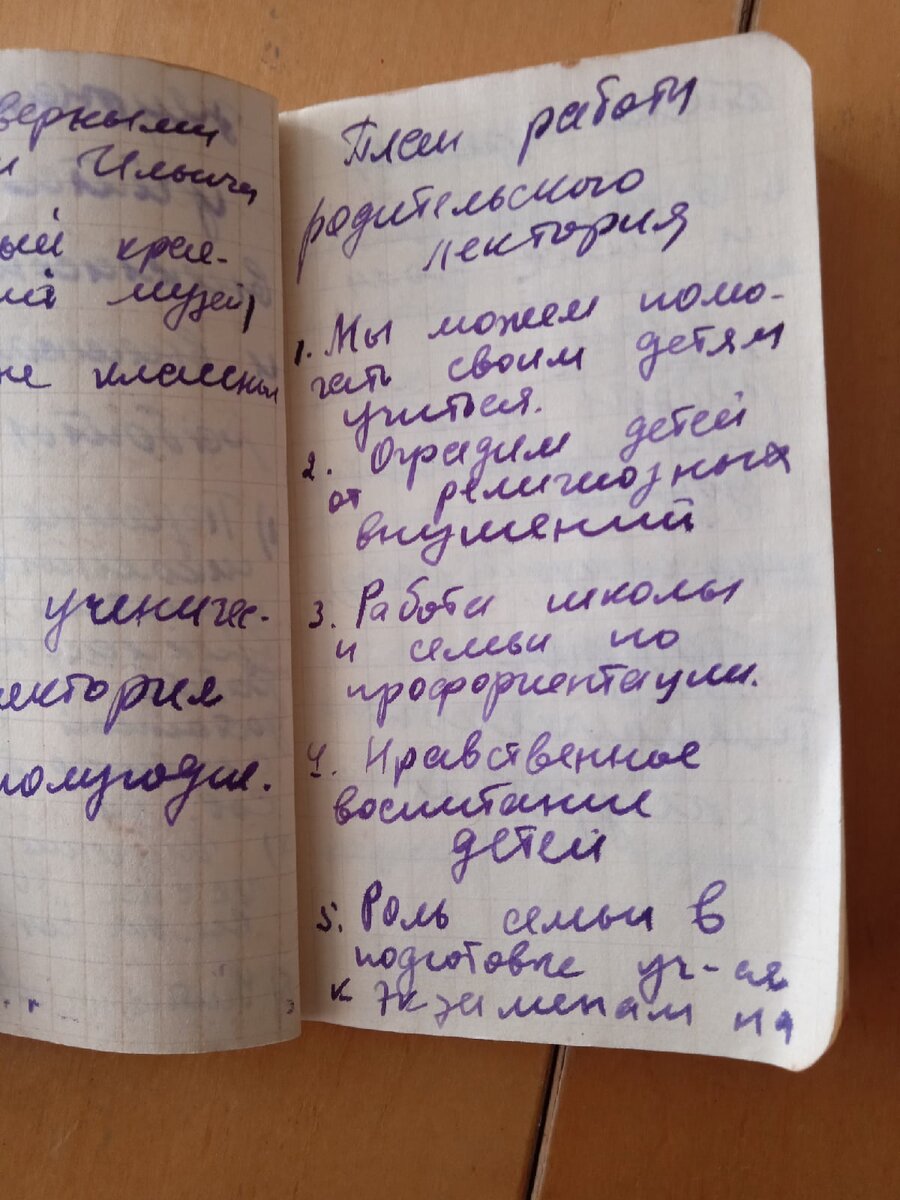 верными
и Ильича
ый крае-
ий музей,
не классных
ученичес-
лектория
полугодие.
План работы
родительского
лектория
1. Мы можем помо-
гать своим детям
учиться.
2. Оградим детей
от религиозных
внушений
3. Работа школы
и семьи по
профориентации.
4. Нравственное
воспитание
детей
5. Роль семьи в
подготовке уч-ся
к экзаменам на